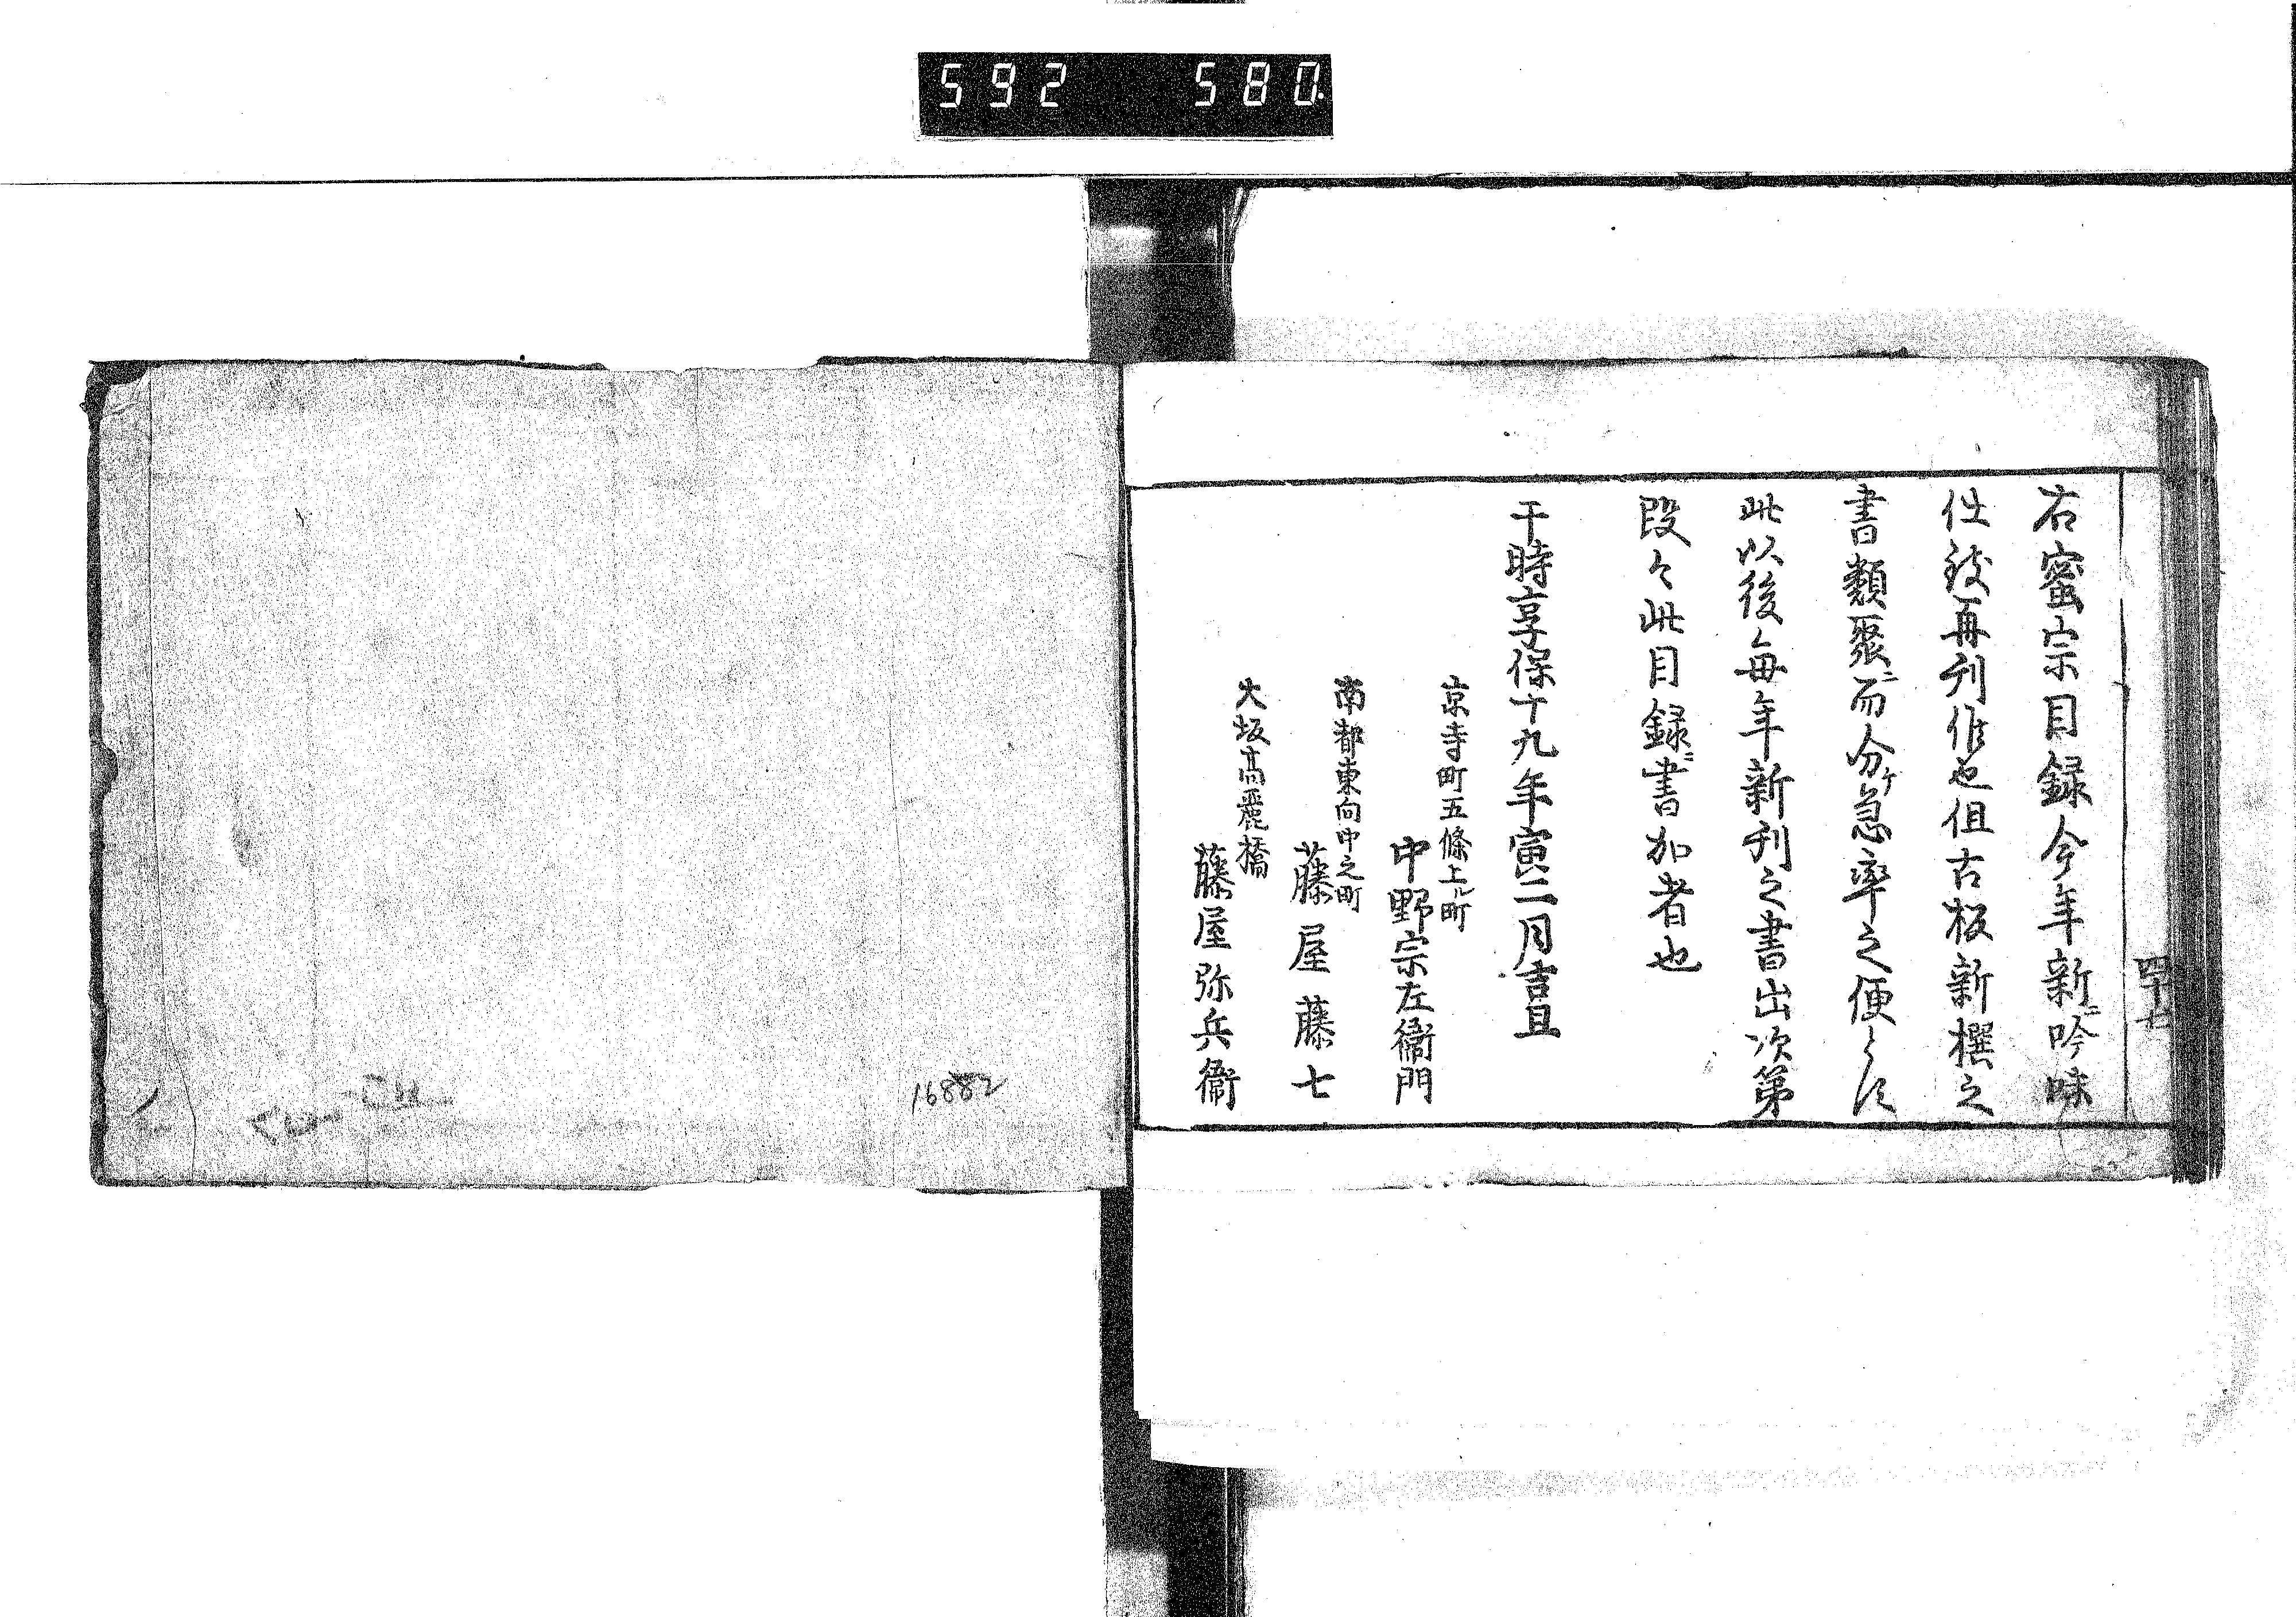 592 580
四十七
右蜜宗目録今年新ニ吟味
仕致再刊作也但古板新撰之
書類聚ニ而分ケ急率之便とス
此以後毎年新刊之書出次第
段々此目録ニ書加者也
干時享保十九年寅二月吉旦
京寺町五條上ル町
中野宗左衞門
南都東向中之町
藤屋藤七
大坂高麗橋
藤屋弥兵衞
16882